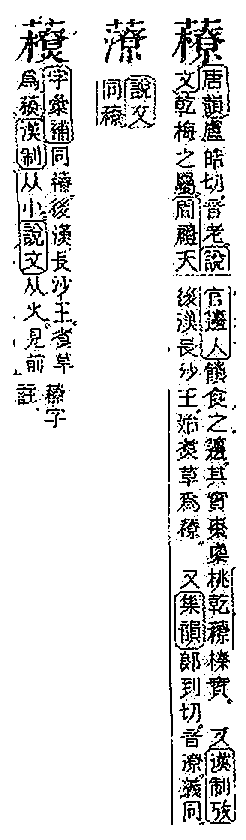 䕩
唐韻盧皓切音老說
文乾梅之屬周禮天
官籩人饋食之籩其實棗㮚桃乾䕩榛實。又漢制攷
後漢長沙王始煑草爲䕩。又集韻郎到切。音潦義同
說文
同䕩
字彙補同䕩後漢長沙王煑草
爲䕩漢制从小說文从火見前
䕩字
註